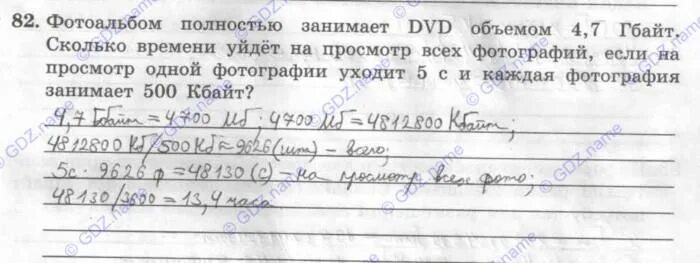 82. Фотоальбом полностью занимает DVD объемом 4,7 Гбайт.
Сколько времени уйдёт на просмотр всех фотографий, если на
просмотр одной фотографии уходит 5 с и каждая фотография
занимает 500 Кбайт?
4,7 Гбайт = 4700 Мб; 4700 Мб = 4812800 Кбайт;
4812800 Кб/500 Кб ≈ 9626 (шт) – всего;
5с · 9626 ф = 48130 (с) – на просмотр всех фото;
48130/3600 = 13,4 часа
© GDZ.name